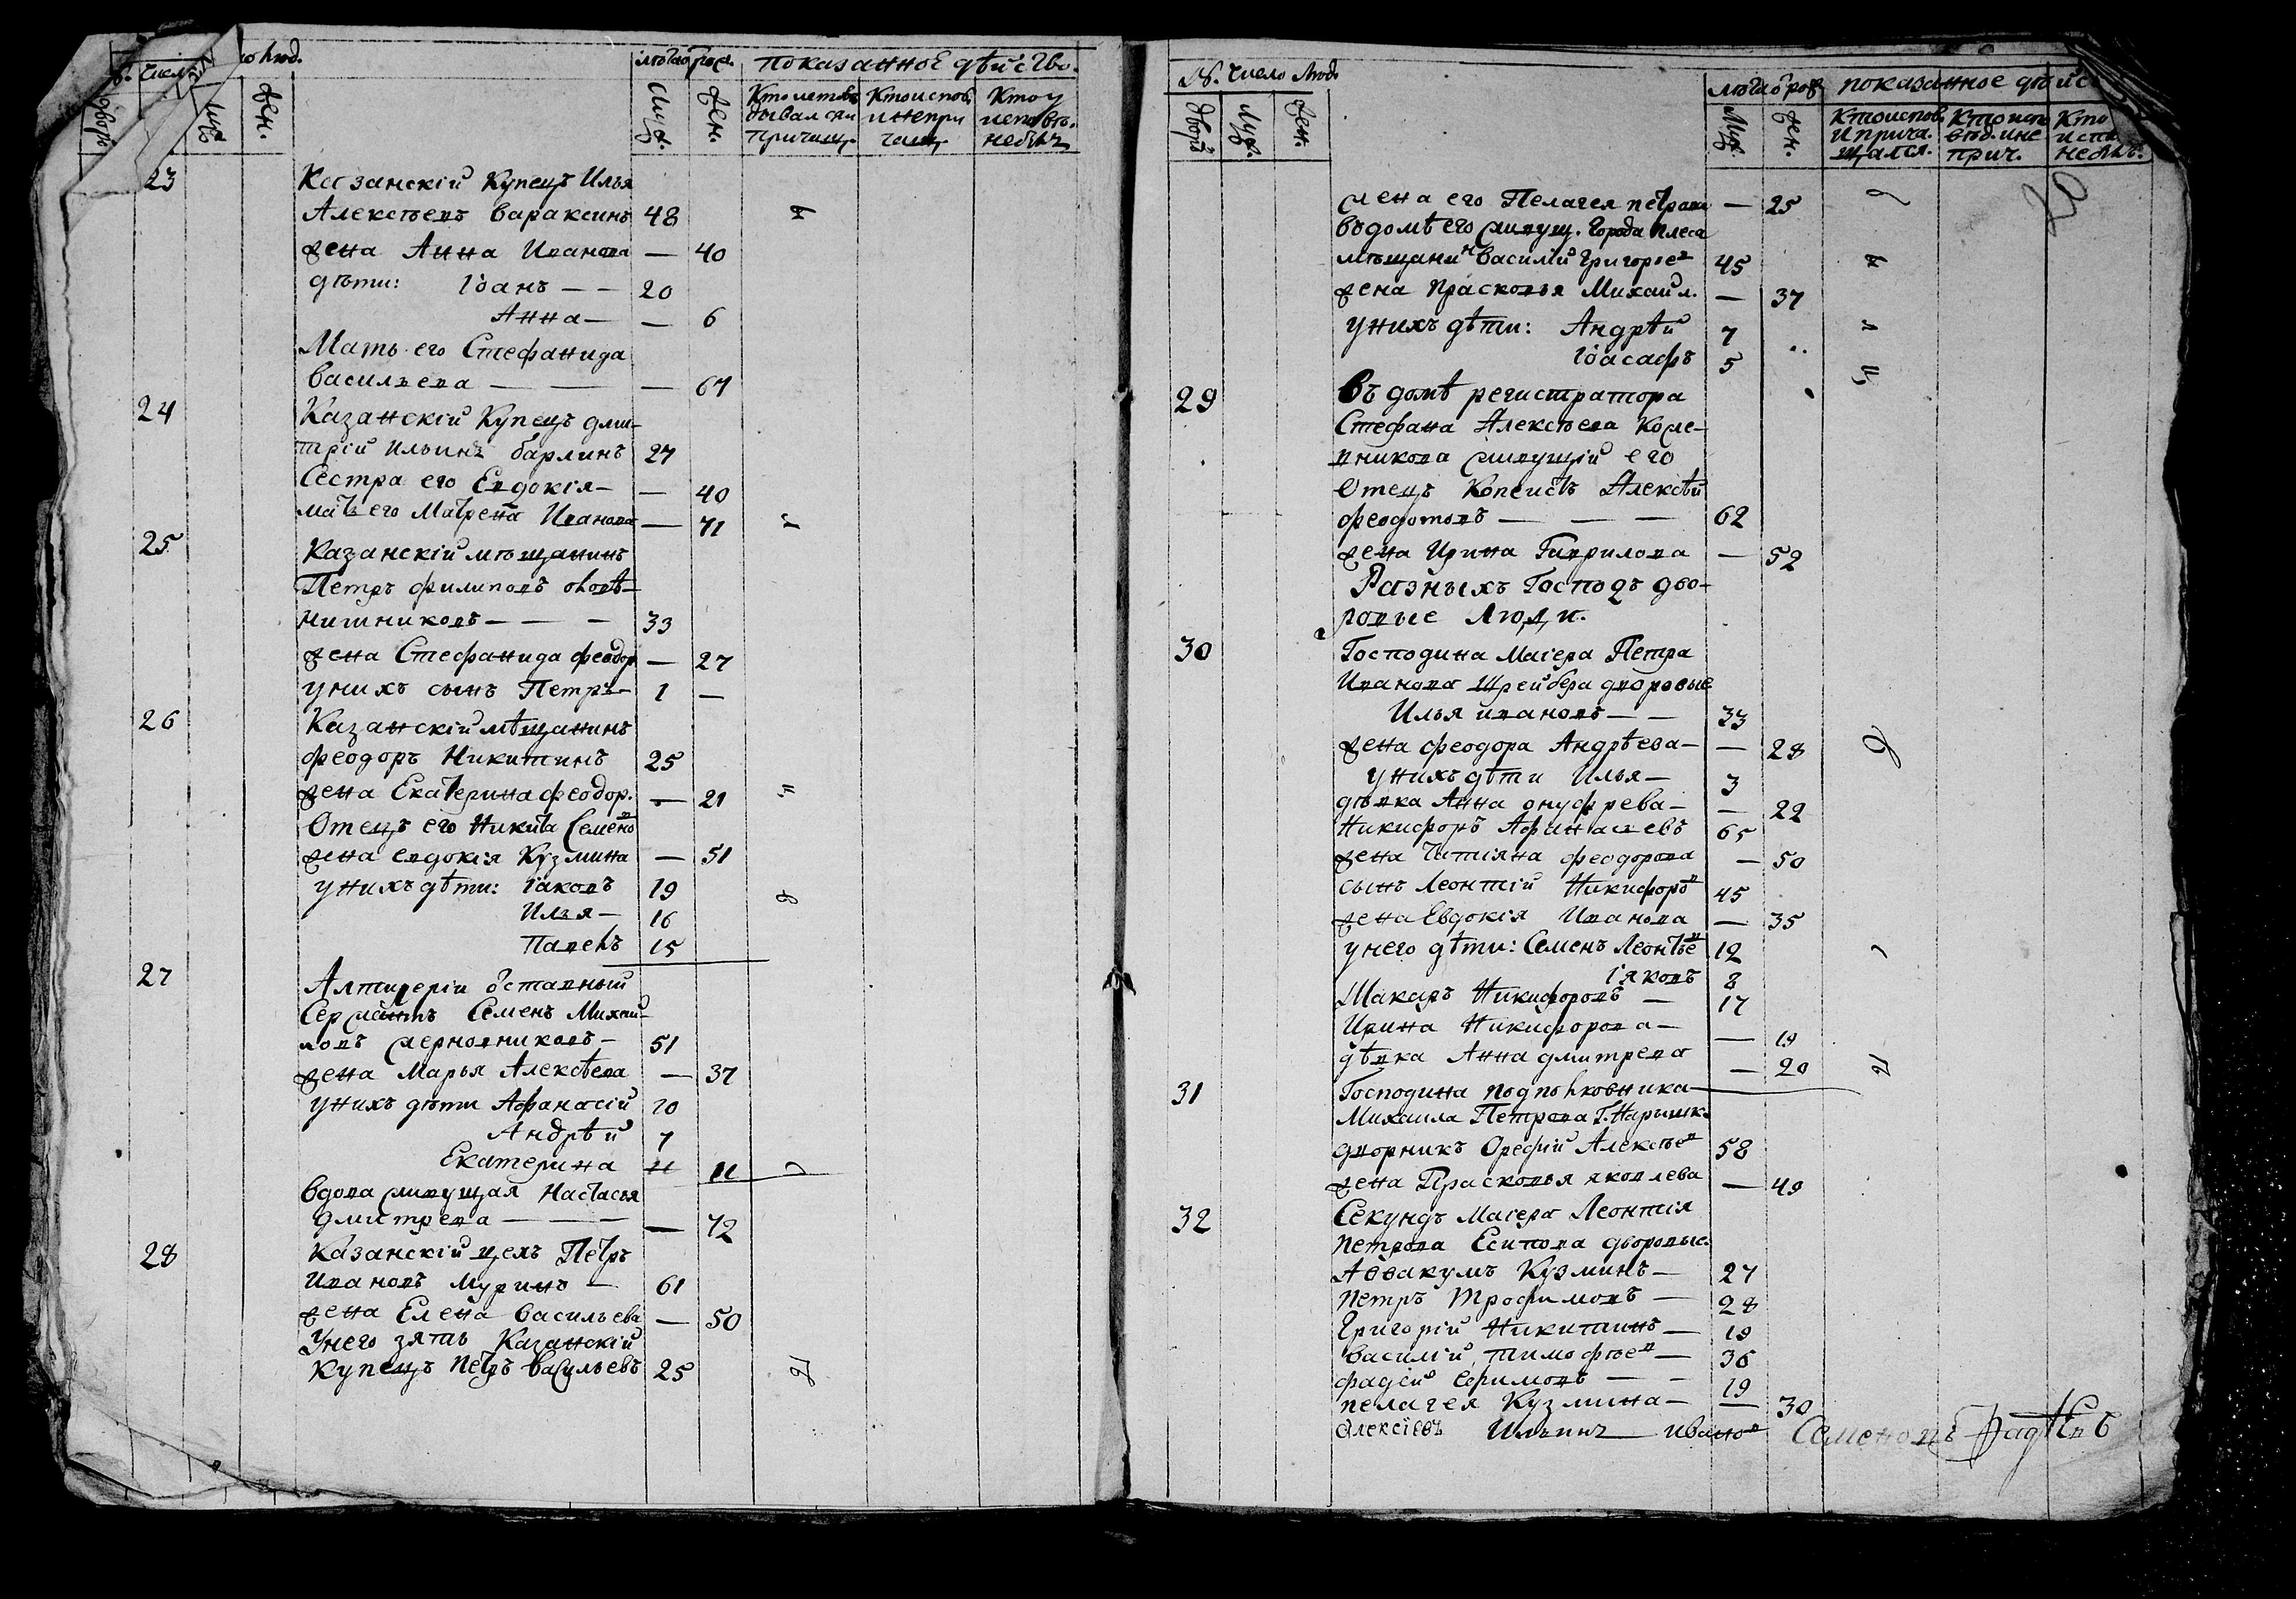 лѣта от рож. показанное дѣйство.
дворы
Муж.
Жен.
Муж.
Жен.
23 Казанскій Купецъ Илья
Алексѣевъ Вараксинъ 48
жена Анна Иванова — 40
дѣти: Іоанъ — — 20
Анна — — 6
Мать его Стефанида
Васильева — — — 67
24 Казанскій Купецъ дми-
трій Ильинъ барлинъ 27
Сестра его Евдокія — — 40
мать его Матрена Иванова — 71
25 Казанскій мѣщанинъ
Петръ филиповъ
нишниковъ — — — 33
жена Стефанида феодор. — 27
у нихъ сынъ Петръ — 1 —
26 Казанскій мѣщанинъ
феодоръ Никитинъ 25
жена Екатерина феодор. — 21
Отецъ его Никита Семено
жена евдокія Кузмина — 51
у нихъ дѣти: Іаковъ 19
Илья — 16
Павелъ 15
27 Алтилеріи оставный
Сержантъ Семенъ Михаи-
ловъ жерновниковъ — 51
жена Марья Алексѣева — 37
у нихъ дѣти Афанасій 10
Андрѣй 7
Екатерина 11 11
вдова живущая Настасья
дмитрева — — — — 72
28 Казанскій цехъ Петръ
Ивановъ Муринъ — 61
жена Елена Васильева — 50
У него зять Казанскій
Купецъ Петръ Васильевъ 25
№. Число Люд. лѣта от рож показанное дѣйс
дворы
Муж.
Жен.
Муж.
Жен.
Кто испов. и прича. щался.
Кто испо вѣд. и не прич.
жена его Пелагея петрова — 25
въ домѣ его живущ. города плеса
мѣщанинъ Василій Григорьев 45
жена прасковья Михаил. — 37
у нихъ дѣти: Андрѣй 7
Іоасафъ 5
29 Въ домѣ регистратора
Стефана Алексѣева Коже-
вникова живущій его
Отецъ Копеистъ Алексѣй
феодотовъ — — — 62
жена Ирина Гаврилова — 52
Разныхъ Господъ дво-
ровые люди.
30 Господина Маіера Петра
Иванова Шрейбера дворовые
Илья ивановъ — — 33
жена феодора Андрѣева — — 28
у нихъ дѣти Илья — 3
дѣвка Анна онуфрева — — 22
Никифоръ Афанасьевъ 65
жена Татіяна феодорова — 50
сынъ Леонтій Никифоровъ 45
жена Евдокія Иванова — 35
у него дѣти: Семенъ Леонтьев 12
Іяковъ 8
Макаръ Никифоровъ — 17
Ирина Никифорова — — 19
дѣвка Анна дмитрева — 20
31 Господина подполковника
Михаила Петрова Г. Наришк.
дворникъ Орефій Алексѣев 58
жена Прасковья яковлева — 49
32 Секундъ Маіера Леонтія
петрова Есипова дворовые
Аввакумъ Кузминъ — 27
петръ трофимовъ — 28
Григорій Никитинъ — 19
Василій тимофѣев — 36
фадѣй Ефимовъ — — 19
пелагея Кузмина — — 30
Алексіевъ Ильинъ Иванов Семеновъ